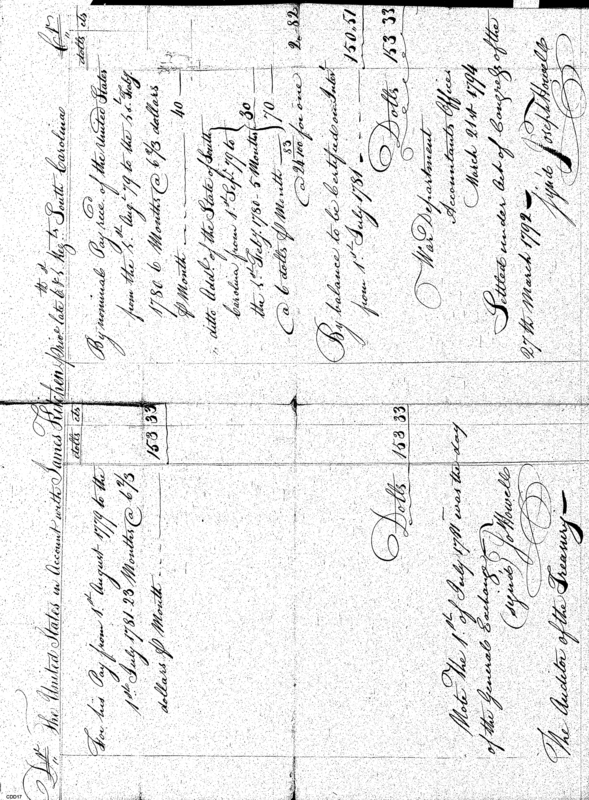 Dr. The United States in Account with James Kitchen Privt. late 6th & 1st Regts. South Carolina Cr.
dolls cts
For his Pay from 1st August 1779 to the
1st July 1781. 23 Months @ 6 2/3
dollars P Month - - - 153 33
Dolls 153 33
Note The 1st. of July 1781 was the day
of the General Exchange
signed Jo Howell
The Auditor of the Treasury
dolls cts
By nominal Pay recd. of the United States
from the 1st. Augt. 79 to the 1st. Feby.
1780 6 Months @ 6 2/3 dollars
P Month - - - 40
ditto Addl. of the State of South
Carolina from 1st Sept. 79 to
the 1st. Feby. 1780. 5 Months 30
@ 6 dolls P Month 70
@ for one 2. 82
By balance to be Certified on Intt.
from 1st July 1781 - - - 150. 51
Dolls 153 33
War Department
Accountants Office
March 21st 1794
Settled under Act of Congress of the
27th March 1792
signed Joseph Howell
CDD17